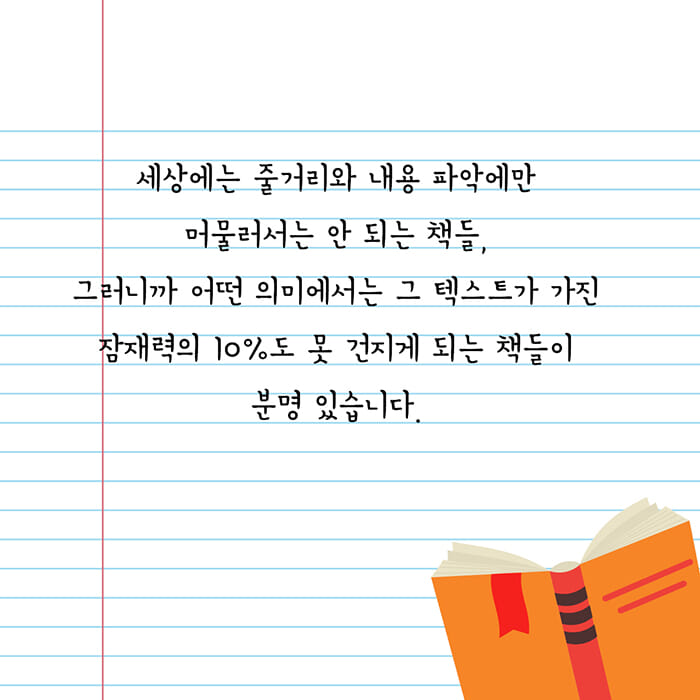 세상에는 줄거리와 내용 파악에만
머물러서는 안 되는 책들,
그러니까 어떤 의미에서는 그 텍스트가 가진
잠재력의 10%도 못 건지게 되는 책들이
분명 있습니다.